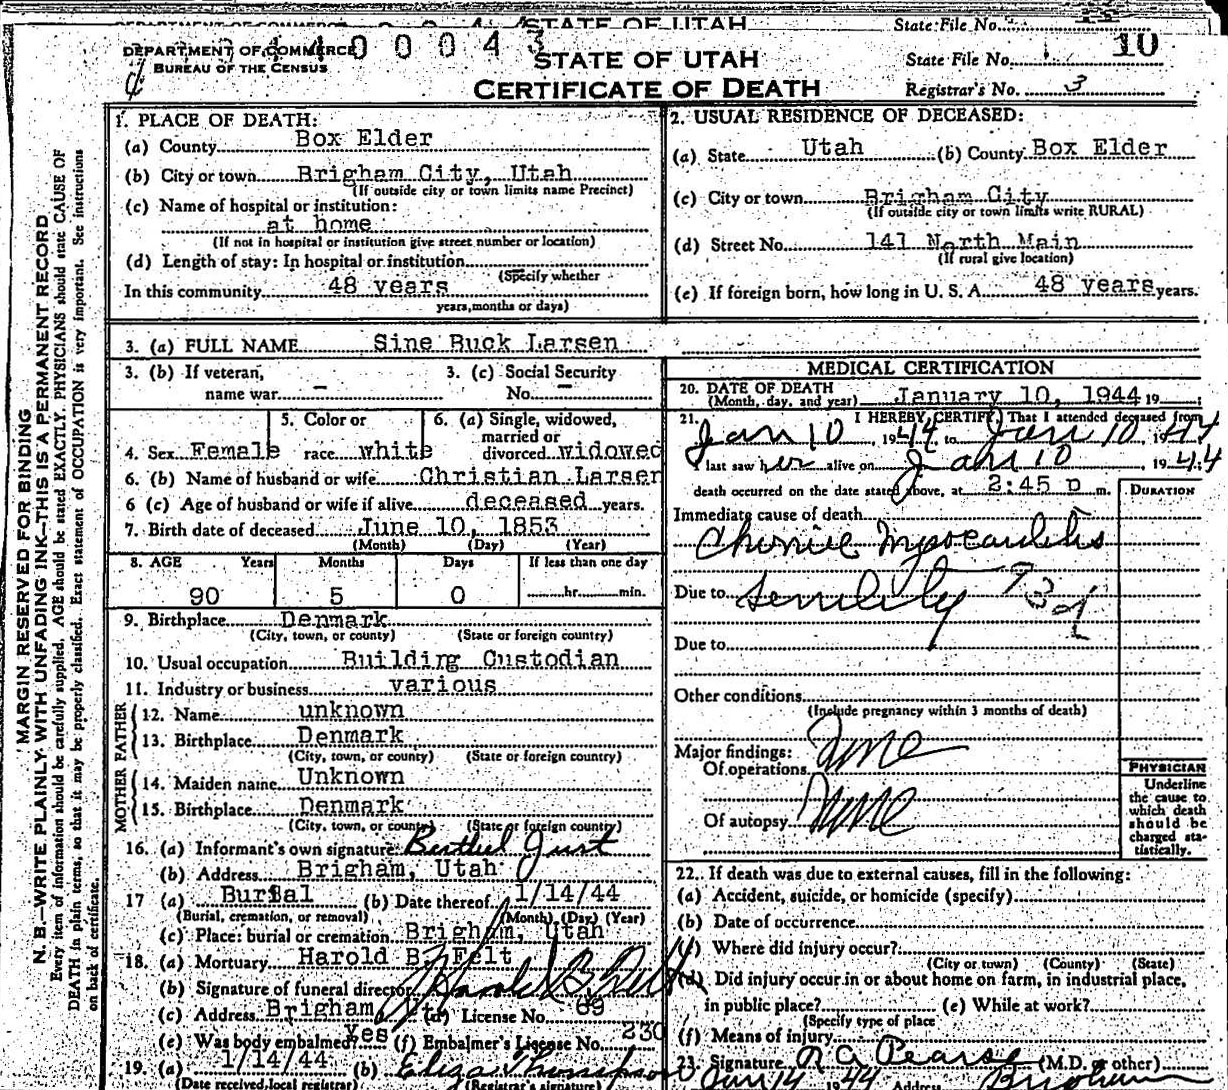 STATE OF UTAH
State File No.
DEPARTMENT OF COMMERCE
BUREAU OF THE CENSUS
STATE OF UTAH
CERTIFICATE OF DEATH
State File No. 10
Registrar's No. 3
MARGIN RESERVED FOR BINDING
N. B.—WRITE PLAINLY WITH UNFADING INK—THIS IS A PERMANENT RECORD
Every item of information should be carefully supplied. AGE should be stated EXACTLY. PHYSICIANS should state CAUSE OF
DEATH in plain terms, so that it may be properly classified. Exact statement of OCCUPATION is very important. See instructions
on back of certificate.
1. PLACE OF DEATH:
(a) County Box Elder
(b) City or town Brigham City, Utah
(If outside city or town limits name Precinct)
(c) Name of hospital or institution:
at home
(If not in hospital or institution give street number or location)
(d) Length of stay: In hospital or institution
(Specify whether
In this community 48 years
years, months or days)
2. USUAL RESIDENCE OF DECEASED:
(a) State Utah (b) County Box Elder
(c) City or town Brigham City
(If outside city or town limits write RURAL)
(d) Street No. 141 North Main
(If rural give location)
(e) If foreign born, how long in U. S. A. 48 years years.
3. (a) FULL NAME Sine Buck Larsen
3. (b) If veteran, 3. (c) Social Security
name war — No. —
5. Color or 6. (a) Single, widowed,
married or
4. Sex Female race white divorced widowed
6. (b) Name of husband or wife Christian Larsen
6 (c) Age of husband or wife if alive deceased years.
7. Birth date of deceased June 10, 1853
(Month) (Day) (Year)
8. AGE Years Months Days If less than one day
90 5 0 hr. min.
9. Birthplace Denmark
(City, town, or county) (State or foreign country)
10. Usual occupation Building Custodian
11. Industry or business various
FATHER
12. Name unknown
13. Birthplace Denmark
(City, town, or county) (State or foreign country)
MOTHER
14. Maiden name Unknown
15. Birthplace Denmark
(City, town, or county) (State or foreign country)
16. (a) Informant's own signature Berthel Just
(b) Address Brigham, Utah
17 (a) Burial (b) Date thereof 1/14/44
(Burial, cremation, or removal) (Month) (Day) (Year)
(c) Place: burial or cremation Brigham, Utah
18. (a) Mortuary Harold B. Felt
(b) Signature of funeral director Harold B. Felt
(c) Address Brigham, (d) License No. 89
(e) Was body embalmed? Yes (f) Embalmer's License No. 230
19. (a) 1/14/44 (b) Eliza Thompson
(Date received local registrar) (Registrar's signature)
MEDICAL CERTIFICATION
20. DATE OF DEATH
(Month, day, and year) January 10, 1944 19
21. I HEREBY CERTIFY, That I attended deceased from
Jan 10, 1944 to Jan 10 1944
I last saw her alive on Jan 10 1944
death occurred on the date stated above, at 2:45 p m. DURATION
Immediate cause of death
Chronic Myocarditis
Due to Senility
Due to
Other conditions
(Include pregnancy within 3 months of death)
Major findings:
Of operations None
Of autopsy None
PHYSICIAN
Underline
the cause to
which death
should be
charged sta-
tistically.
22. If death was due to external causes, fill in the following:
(a) Accident, suicide, or homicide (specify)
(b) Date of occurrence
(c) Where did injury occur?
(City or town) (County) (State)
(d) Did injury occur in or about home on farm, in industrial place,
in public place? (e) While at work?
(Specify type of place
(f) Means of injury
23. Signature R A Pearse (M.D. or other)
Jan 14 1944 Address Brigham